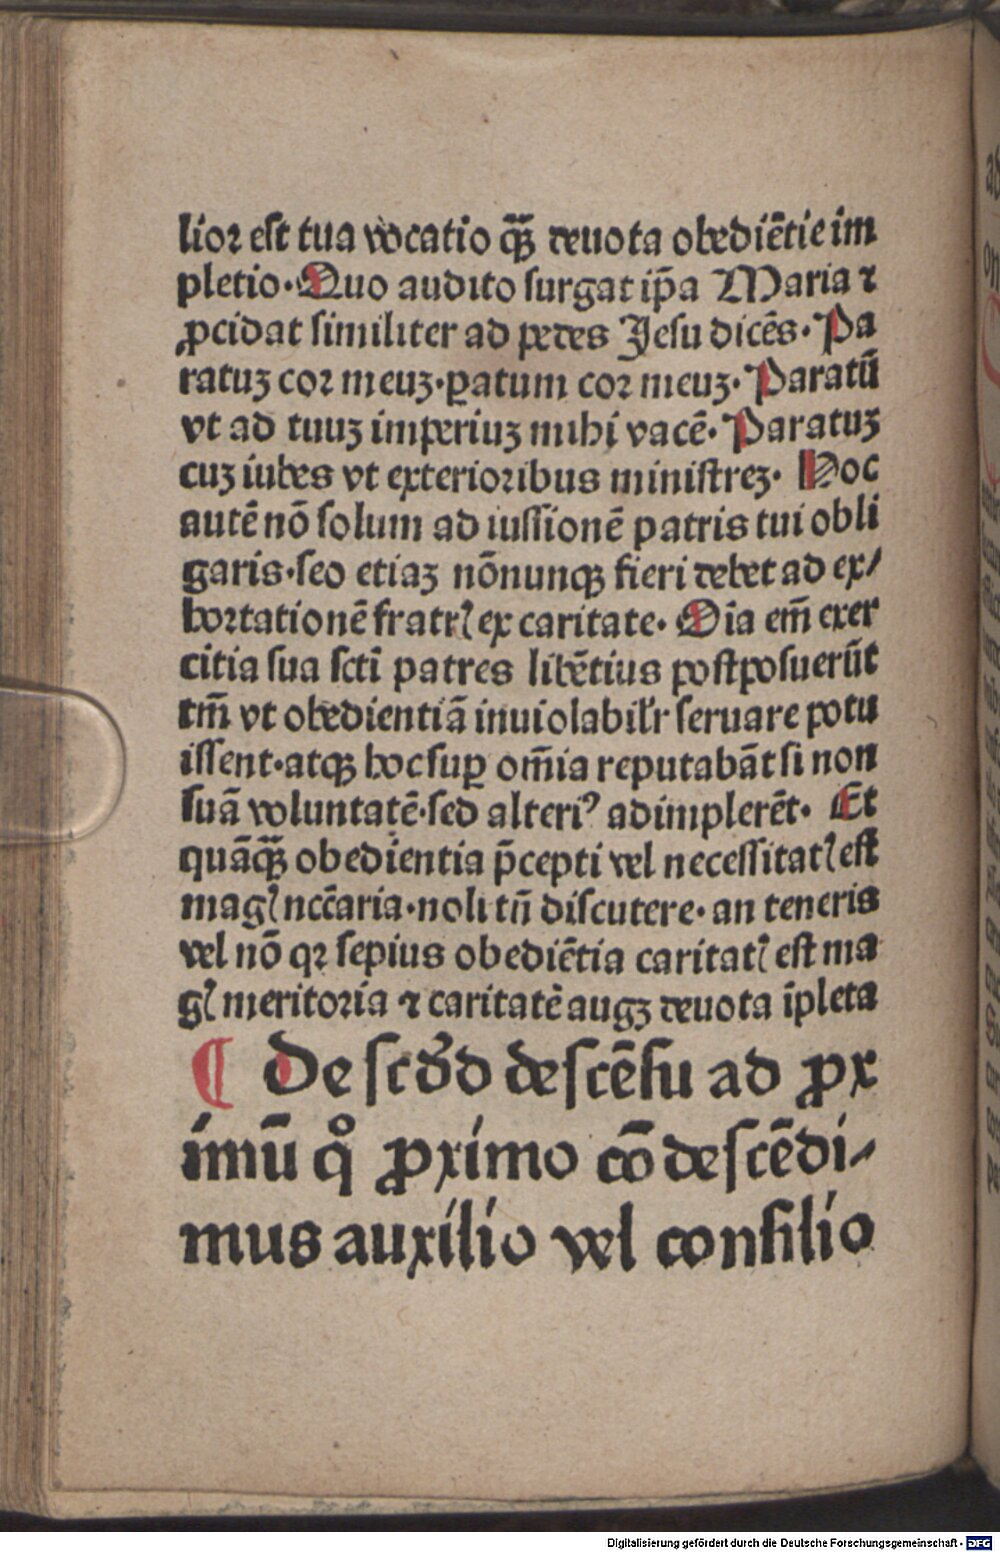 lior est tua vocatio qꝫ̃ deuota obediẽtie im
pletio·Quo audito surgat ip̃a Maria ⁊
ꝓcidat similiter ad pedes Jesu dicẽs·Pa
ratuꝫ cor meuꝫ·ꝑatum cor meuꝫ·Paratũ
vt ad tuuꝫ imperiuꝫ mihi vacẽ·Paratuꝫ
cuꝫ iubes vt exterioribus ministreꝫ· Hoc
autẽ nõ solum ad iussionẽ patris tui obli
garis·seo etiaꝫ nõnunqꝫ fieri debet ad ex/
hortationẽ fratrꝭ ex caritate· Oĩa em̃ exer
citia sua sctĩ patres libẽtius postposuerũt
tm̃ vt obedientiã inuiolabil'r seruare potu
issent·atqꝫ hoc suꝑ om̃ia reputabãt si non
suã voluntatẽ·sed alteriꝰ adimplerẽt· Et
quãqꝫ̃ obedientia p̃cepti vel necessitatꝭ est
magꝭ nccẽaria·noli tñ discutere· an teneris
vel nõ qꝛ sepius obediẽtia caritatꝭ est ma
gꝭ meritoria ⁊ caritatẽ augꝫ deuota ĩpleta
¶ De scðo descẽsu ad ꝓx
imũ qͦ ꝓximo cõdescẽdi/
mus auxilio vel consilio
Digitalisierung gefördert durch die Deutsche Forschungsgemeinschaft - DFG